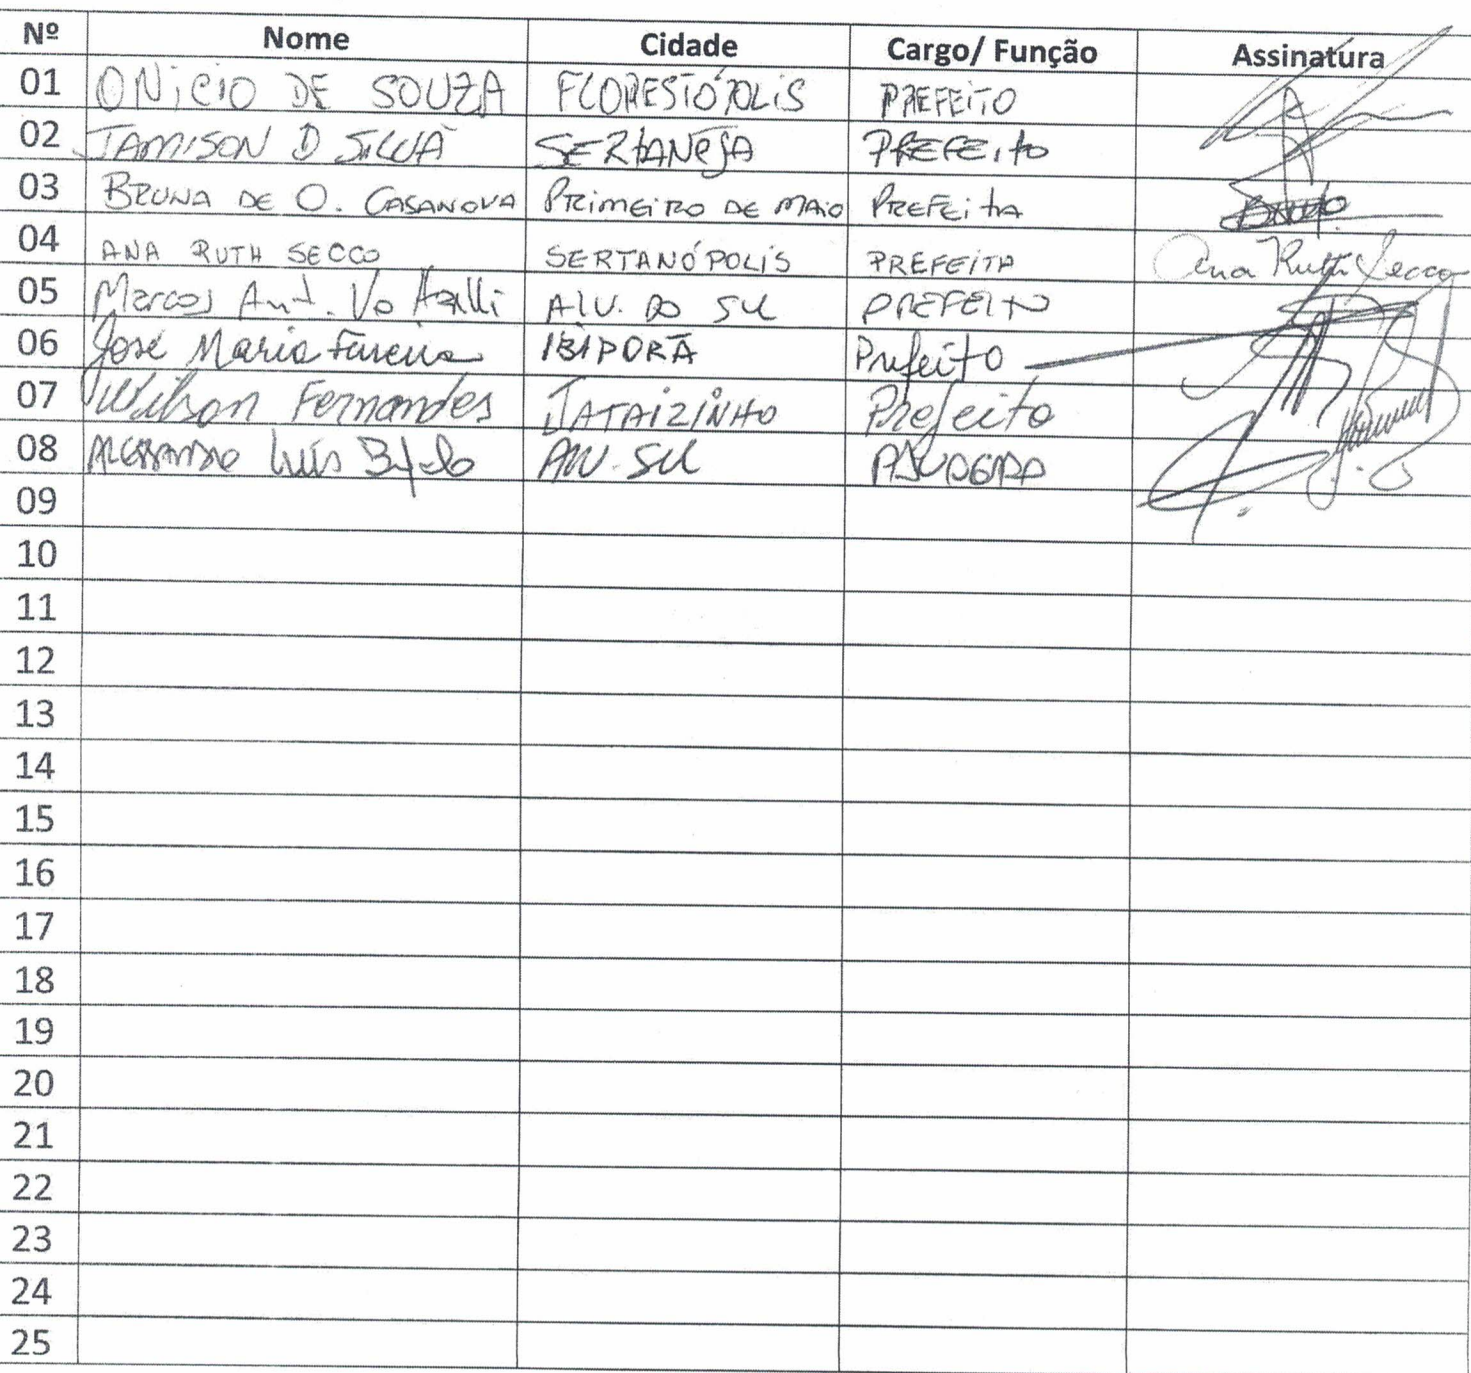 Nº Nome Cidade Cargo/ Função Assinatura
01 ONICIO DE SOUZA FLORESTÓPOLIS PREFEITO
02 JAMISON D SILVA SERTANEJA PREFEITO
03 BRUNA DE O. CASANOVA PRIMEIRO DE MAIO PREFEITA
04 ANA RUTH SECCO SERTANÓPOLIS PREFEITA Ana Ruth Secco
05 Marcos Ant. ALV. DO SUL PREFEITO
06 José Maria Ferreira IBIPORÃ Prefeito
07 Wilson Fernandes JATAIZINHO Prefeito
08 Luís ALV. SUL
09
10
11
12
13
14
15
16
17
18
19
20
21
22
23
24
25